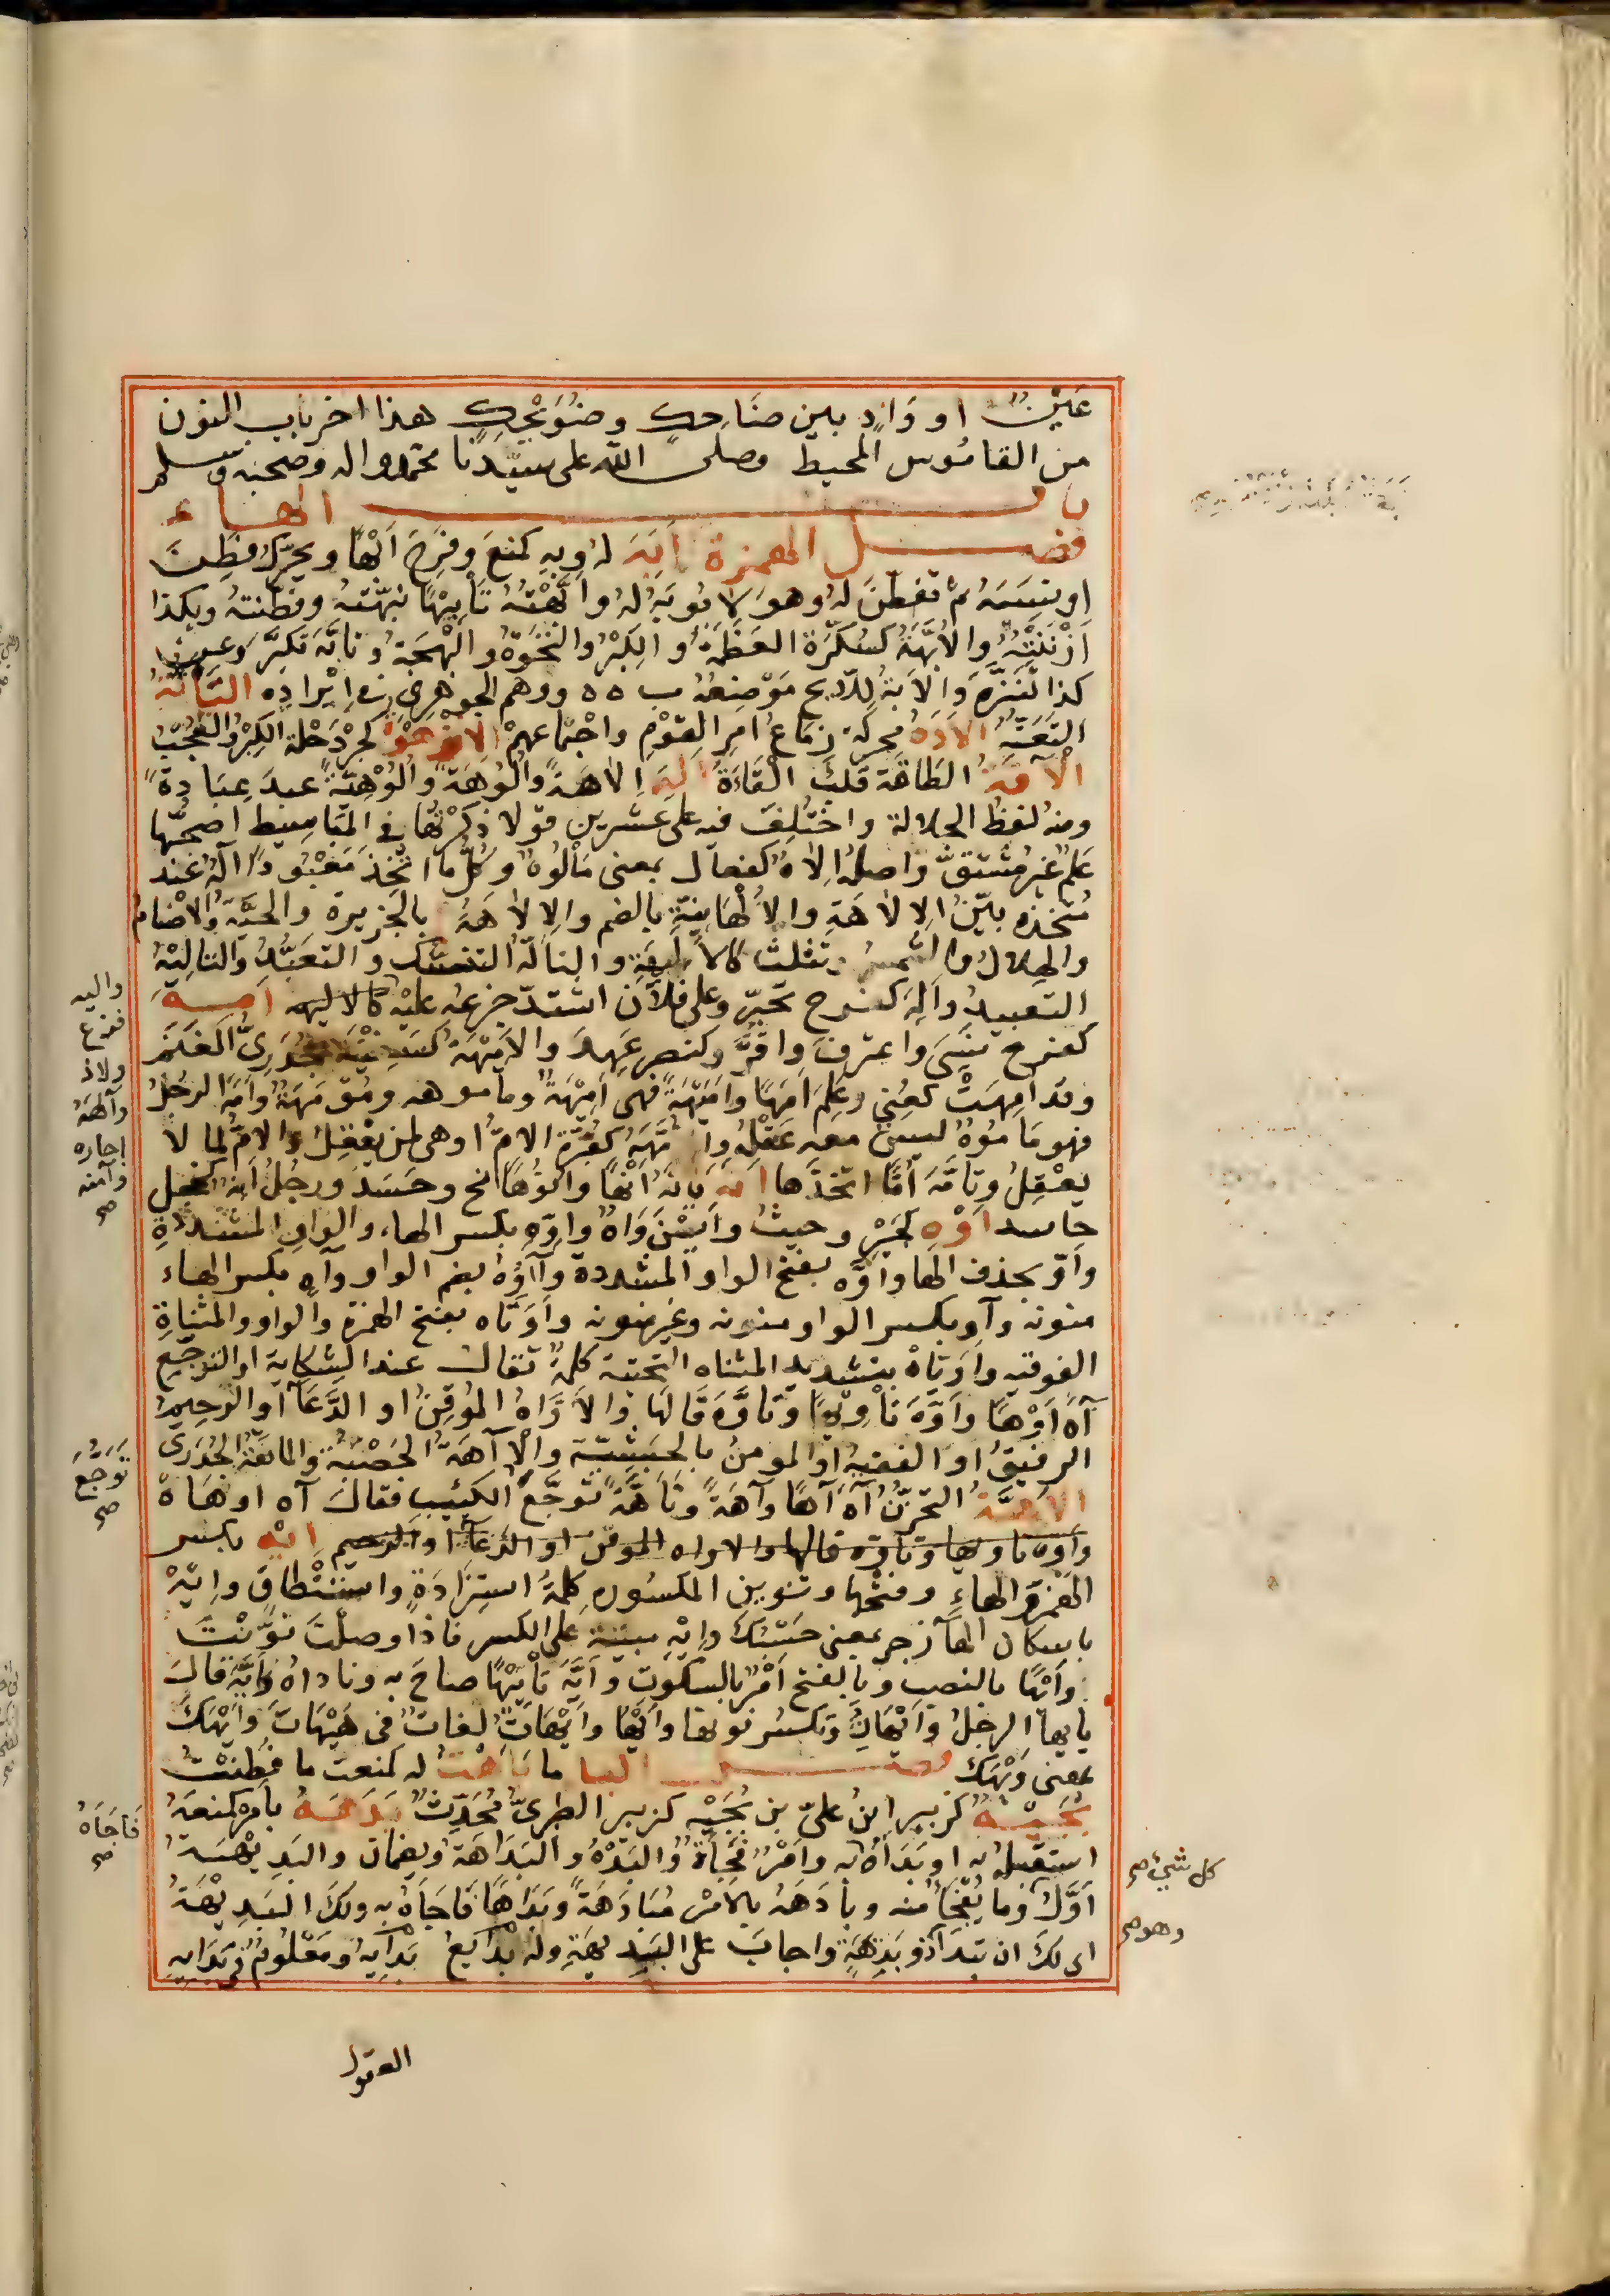 عَيْنٌ او وَادٍ بين ضَاحِكٍ وضُوَيْحِكٍ هذا اخر باب النون
من القامُوس المحيط وصلى الله على سيّدنا محمد واله وصحبه وسلم
باب الهاء
فصل الهمزة اَبَهَ لهُ وبِهِ كمَنعَ وفَرِحَ اَبْهًا ويحرّك فَطِنَ
او نَسِيَهُ ثم تفطّنَ لهُ وهوَ لا يُوبَهُ لهُ واَبَّهْتُهُ تَأْبِيْهًا نبّهتُهُ وفطّنتهُ وبكذا
اَزْنَنْتُهُ والاُبَّهَةُ كسُكَّرَة العَظَمَةُ و الكِبْرُ والنَّخْوَةُ و البَهْجَةُ وتأبّهَ تكبَّرَ وعن
كذا تَنَزَّهَ وَالاَبَهُ لِلاَبَحِّ مَوْضِعُهُ ب ه ه ووهم الجوهري في اِيْرادِهِ التَأَتُّهُ
التَعَتُّهُ الاَدَهُ محركة زِمَاعُ امرِ القَوْمِ واجْتماعهمْ الاِنْزَهْوُ كجِرْدَحْلة الكِبْرُ والعُجْبُ
الاَقَهُ الطاقة قَلْبُ القَاءَةُ اَلَهَ اِلاهَةً واُلُوهَةً واُلُوْهِيَّةً عبدَ عِبَادةً
ومنهُ لفظُ الجلالة واختُلِفَ فيه على عشرين قولا ذكرْتُها في المَبَاسِيْط اصحّها
عَلَمٌ غيرُ مُشتقٍّ واصلهُ اِلاهٌ كفِعال بمعنى مَأْلُوهٌ وكُلُّ ما اتُّخِذَ مَعْبُودًا اِلهٌ عند
مُتّخذهِ بيّنُ الاِلاهَةِ والاُلْهَانِيَّةِ بالضم والاِلاهَةُ بالجزيرة والحيَّةُ والاَصْنامُ
والهِلالُ والشّمسُ وتثلث كالاَلِيهَةِ والتألّهُ التنسّك و التعبُّدُ والتاليْهُ
التعبيدُ واَلِهَ كفرح تحيّر وعلى فلانٍ اشتدّ جزعه عليْه كالاليهه اَمِهَ
كفرح نَسِيَ واعترفَ واقرَّ وكنصر عَهِدَ والاَمِيْهَةُ كسَفِيْنَة جُدَرِيُّ الغَنَمِ
وقد اُمِهَتْ كعُنِيَ وعَلِمَ اَمَهًا واَمِيْهَةً فهى اَمِيْهَةٌ ومأموهه ومُؤَمَّهَةٌ واَمَهَ الرجُلُ
فهو مَأمُوْهٌ ليس معه عَقْلُه والاُمَّهَةُ كقُبَّرَة الامُّ او هى لمن يَعْقِلُ والامُّ لما لا
يعْقِلُ وتأمَّهَ اُمًّا اتخذَها اَنَهَ يَأنِهُ اَنْهًا واُنُوْهًا انح وحَسَدَ ورجُلٌ اَنِهٌ كخجل
حاسد اَوْهِ كجَيْرِ وحيثُ واَيْنَ وَاهٌ واوِّهِ بكسر الهاء والواو المشدّدةِ
واَوّ بحذف الها واَوَّه بفتح الواو المشددة وآوُهُ بضم الواو وآهِ بكسر الهاء
منونه وآوِ بكسر الواو منونه وغير منونه واَوَتَاه بفتح الهمزة والواو والمثناةِ
الفوقيه وآوِيَّاهْ بتشديد المثناه التحتية كلمةٌ تقال عند الشكاية او التوجّع
آهَ اَوْهًا واَوَّهَ تَأْوِيْهًا وتأوَّهَ قالَها والاَوَّاهُ المُوْقِنُ او الدَّعَّاءُ او الرحيمُ
الرفيقُ او الفقيهُ او المؤمنُ بالحبشيّة والآهَةُ الحَصْبَةُ والماهَةُ الجُدَرِيُّ
الاَهَّةُ التحزّنُ آهَ آهًا وآهَةً وتأهَّهَ توجَّعَ الكئيبِ فقال آه او هَاهْ
وَاَوّهَ تاويها وتاوّه قالها والاواه الموقن او الدعاء او الرحيم اِيْهِ بكسر
الهَمْزةِ والهاءِ وفتْحها وتنوين المكسُوره كلمةُ استِزَادَةٍ واستنْطاقٍ واِيْهْ
باسكان الهاء زجر بمعنى حَسْبُكَ واِيْهِ مبنية على الكسر فاذا وصلْتَ نوَّنْتَ
واِيْهًا بالنصب وبالفتح اَمْرٌ بالسكوت واَيَّهَ تَأْيِيْهًا صاحَ به وناداهُ وَاَيَّهَ قال
يا يها الرجلُ واَيْهَانِ وتكسر نونها واَيْهَا واَيْهَاتَ لغاتٌ فى هَيْهَاتَ وَاَيْهَكَ
بمعنى وَيْهَكَ فصل البا ما بَاهْتُ له كمنعْتُ ما فَطِنْتُ
بُجَيْهٌ كزبير ابنُ علىّ بن بُجَيْهٍ كزبير الطبرىّ مُحَدِّثٌ بَدَهَهُ بأمر كمنَعَهُ
استقبلهُ به او بَدَأهُ به واَمْرٌ فَجِأَةٌ والبُدْهُ والبَدَاهَةُ ويضمّان والبَدِيْهَة
اَوَّلُ وما يُفْجَأُ منه وبادَهَهُ بالامر مُبَادَهَةً وبِدَاهًا فاجَأَهُ به ولكَ البَدِيْهَةُ
اى لكَ ان تبدأَ وذو بَدِهَةٍ واجابَ على البَدِيهَةِ وله بدائعُ بَدَايِهُ ومَعْلُومٌ فى بَدَايِهِ
العقول
واليه
ففزع
ولاذ
وآلهَهُ
اجاره
وآمنه
صح
تَوَجَّعَ
صح
فَاجَأهُ
صح
كل شئ صح
وهو صح